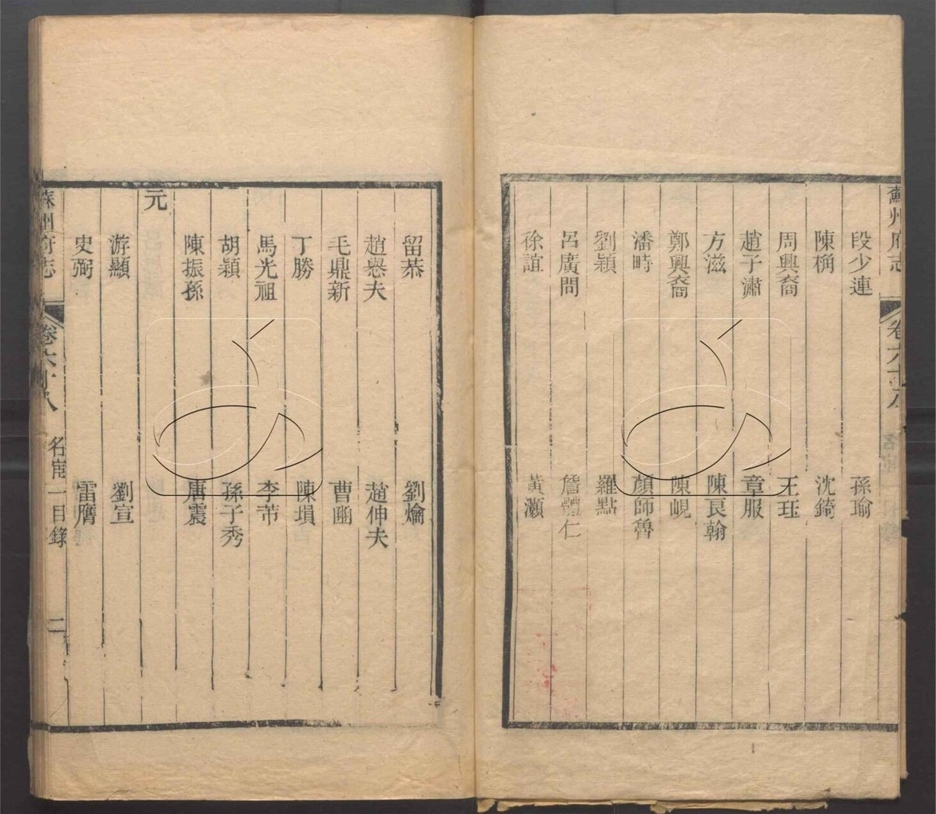 蘇州府志
卷六十八
段少連 孫瑜
陳稱 沈錡
周興裔 王玨
趙子潚 章服
方滋 陳良翰
鄭興裔 陳峴
潘畤 顏師魯
劉穎 羅點
呂廣問 詹體仁
徐誼 黃灝
留恭 劉爚
趙與夫 趙伸夫
毛鼎新 曹豳
丁勝 陳塤
馬光祖 李芾
胡穎 孫子秀
陳振孫 唐震
元
游顯 劉宣
史弼 雷膺
蘇州府志 卷六十八 名宦一目錄 二